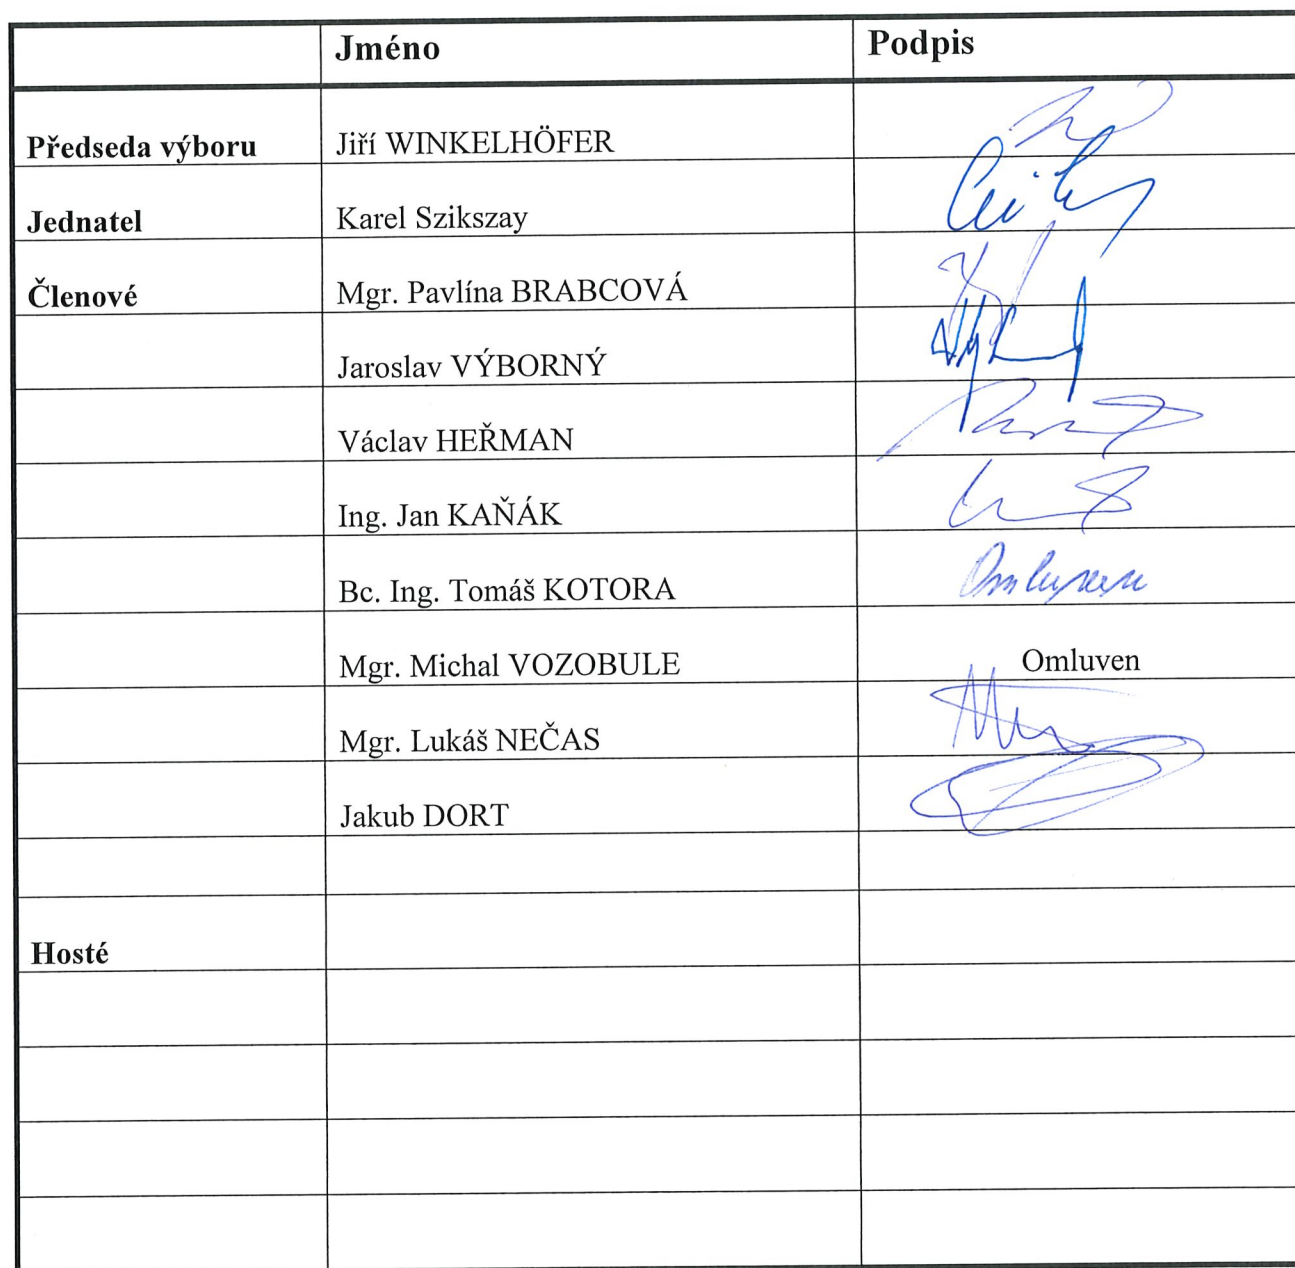 Jméno Podpis
Předseda výboru Jiří WINKELHÖFER
Jednatel Karel Szikszay
Členové Mgr. Pavlína BRABCOVÁ
Jaroslav VÝBORNÝ
Václav HEŘMAN
Ing. Jan KAŇÁK
Bc. Ing. Tomáš KOTORA Omluven
Mgr. Michal VOZOBULE Omluven
Mgr. Lukáš NEČAS
Jakub DORT
Hosté